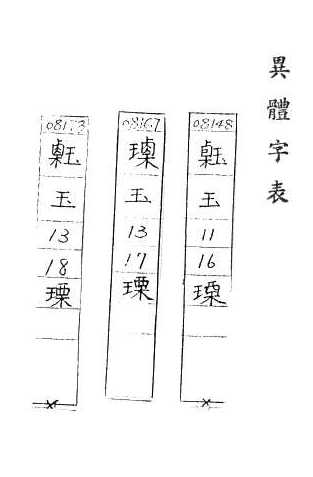 異體字表
08148
玉
11
16
08167
玉
13
17
瑮
08173
玉
13
18
瑮